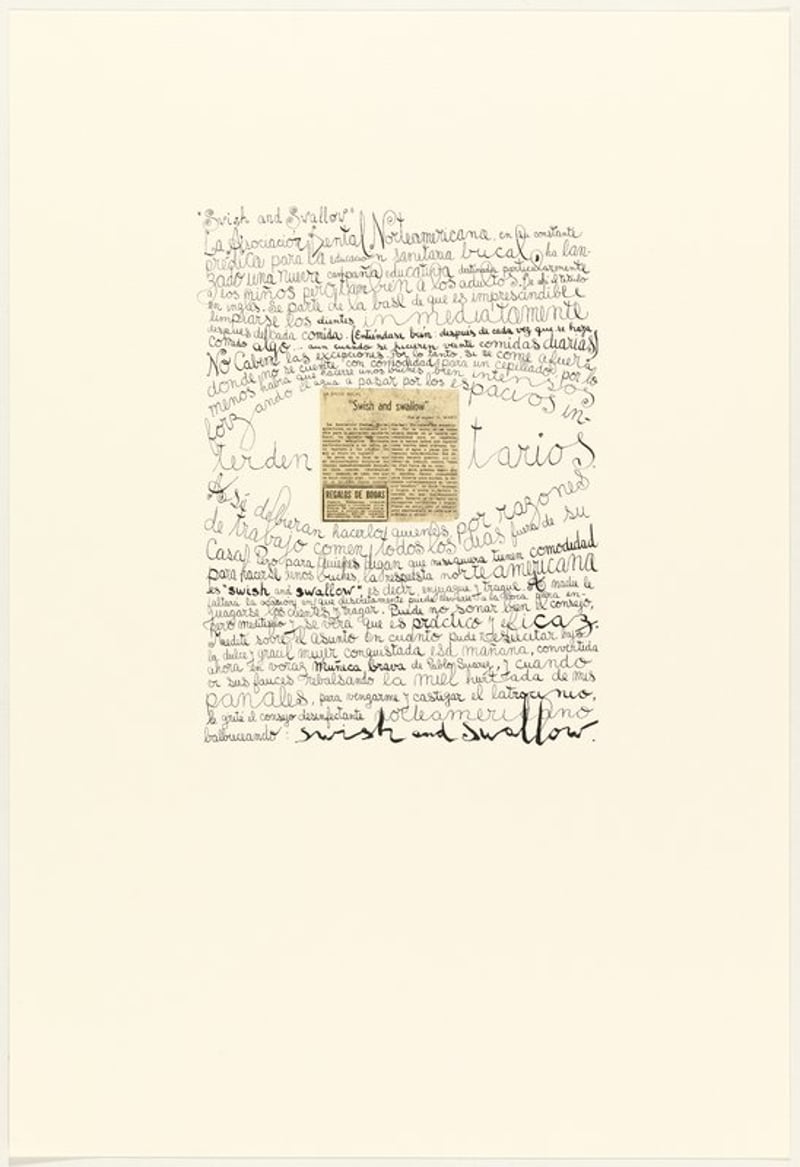 "Swish and Swallow"
La Asociación Dental Norteamericana, en su constante
prédica para la educación sanitaria bucal, ha lan-
zado una nueva campaña educativa destinada particularmente
a los niños pero también a los adultos. De ahí el título
en inglés. Se parte de la base de que es imprescindible
limpiarse los dientes inmediatamente
después de cada comida. (Entiéndase bien: después de cada vez que se haya
comido algo... aun cuando se hicieren veinte comidas diarias)
No caben las excepciones. Por lo tanto, si se come afuera
donde no se cuente con comodidad para un cepillado, por lo
menos habrá que hacerse unos buches bien intensos
forzando el agua a pasar por los espacios in-
terden tarios.
"Swish and swallow"
REGALOS DE BODAS
Así debieran hacerlo quienes por razones
de trabajo comen todos los días fuera de su
casa. Pero para quienes digan que ni siquiera tienen comodidad
para hacerse unos buches, la respuesta norteamericana
es "swish and swallow", es decir, enjuague y trague. A nadie le
faltará la ocasión en que discretamente puede llevarse a la boca para en-
juagarse los dientes y tragar. Puede no sonar bien el consejo,
pero medítelo y se verá que es práctico y eficaz.
Medité sobre el asunto en cuanto pude resucitar bajo
la dulce y grácil mujer conquistada esa mañana, convertida
ahora en voraz Muñeca brava de Pablo Suárez, y cuando
vi sus fauces rebalsando la miel hurtada de mis
panales, para vengarme y castigar el latrocinio,
le grité el consejo desinfectante norteamericano
balbuceando: swish and swallow.